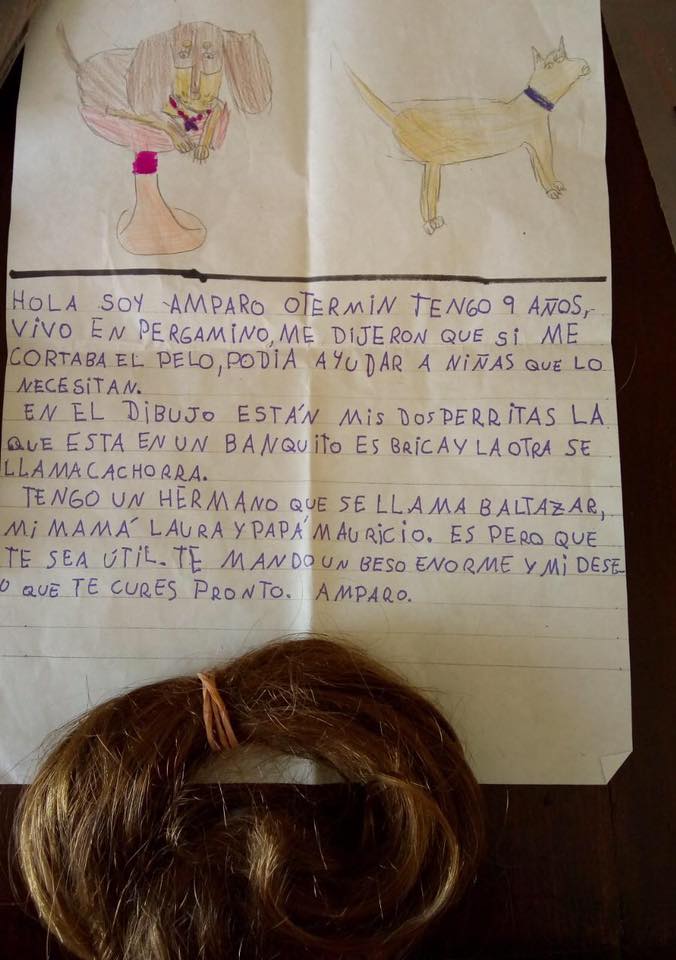 HOLA SOY AMPARO OTERMIN TENGO 9 AÑOS,
VIVO EN PERGAMINO, ME DIJERON QUE SI ME
CORTABA EL PELO, PODIA AYUDAR A NIÑAS QUE LO
NECESITAN.
EN EL DIBUJO ESTÁN MIS DOS PERRITAS LA
QUE ESTA EN UN BANQUITO ES BRICA Y LA OTRA SE
LLAMA CACHORRA.
TENGO UN HERMANO QUE SE LLAMA BALTAZAR,
MI MAMÁ LAURA Y PAPÁ MAURICIO. ES PERO QUE
TE SEA ÚTIL. TE MANDO UN BESO ENORME Y MI DESE
O QUE TE CURES PRONTO. AMPARO.